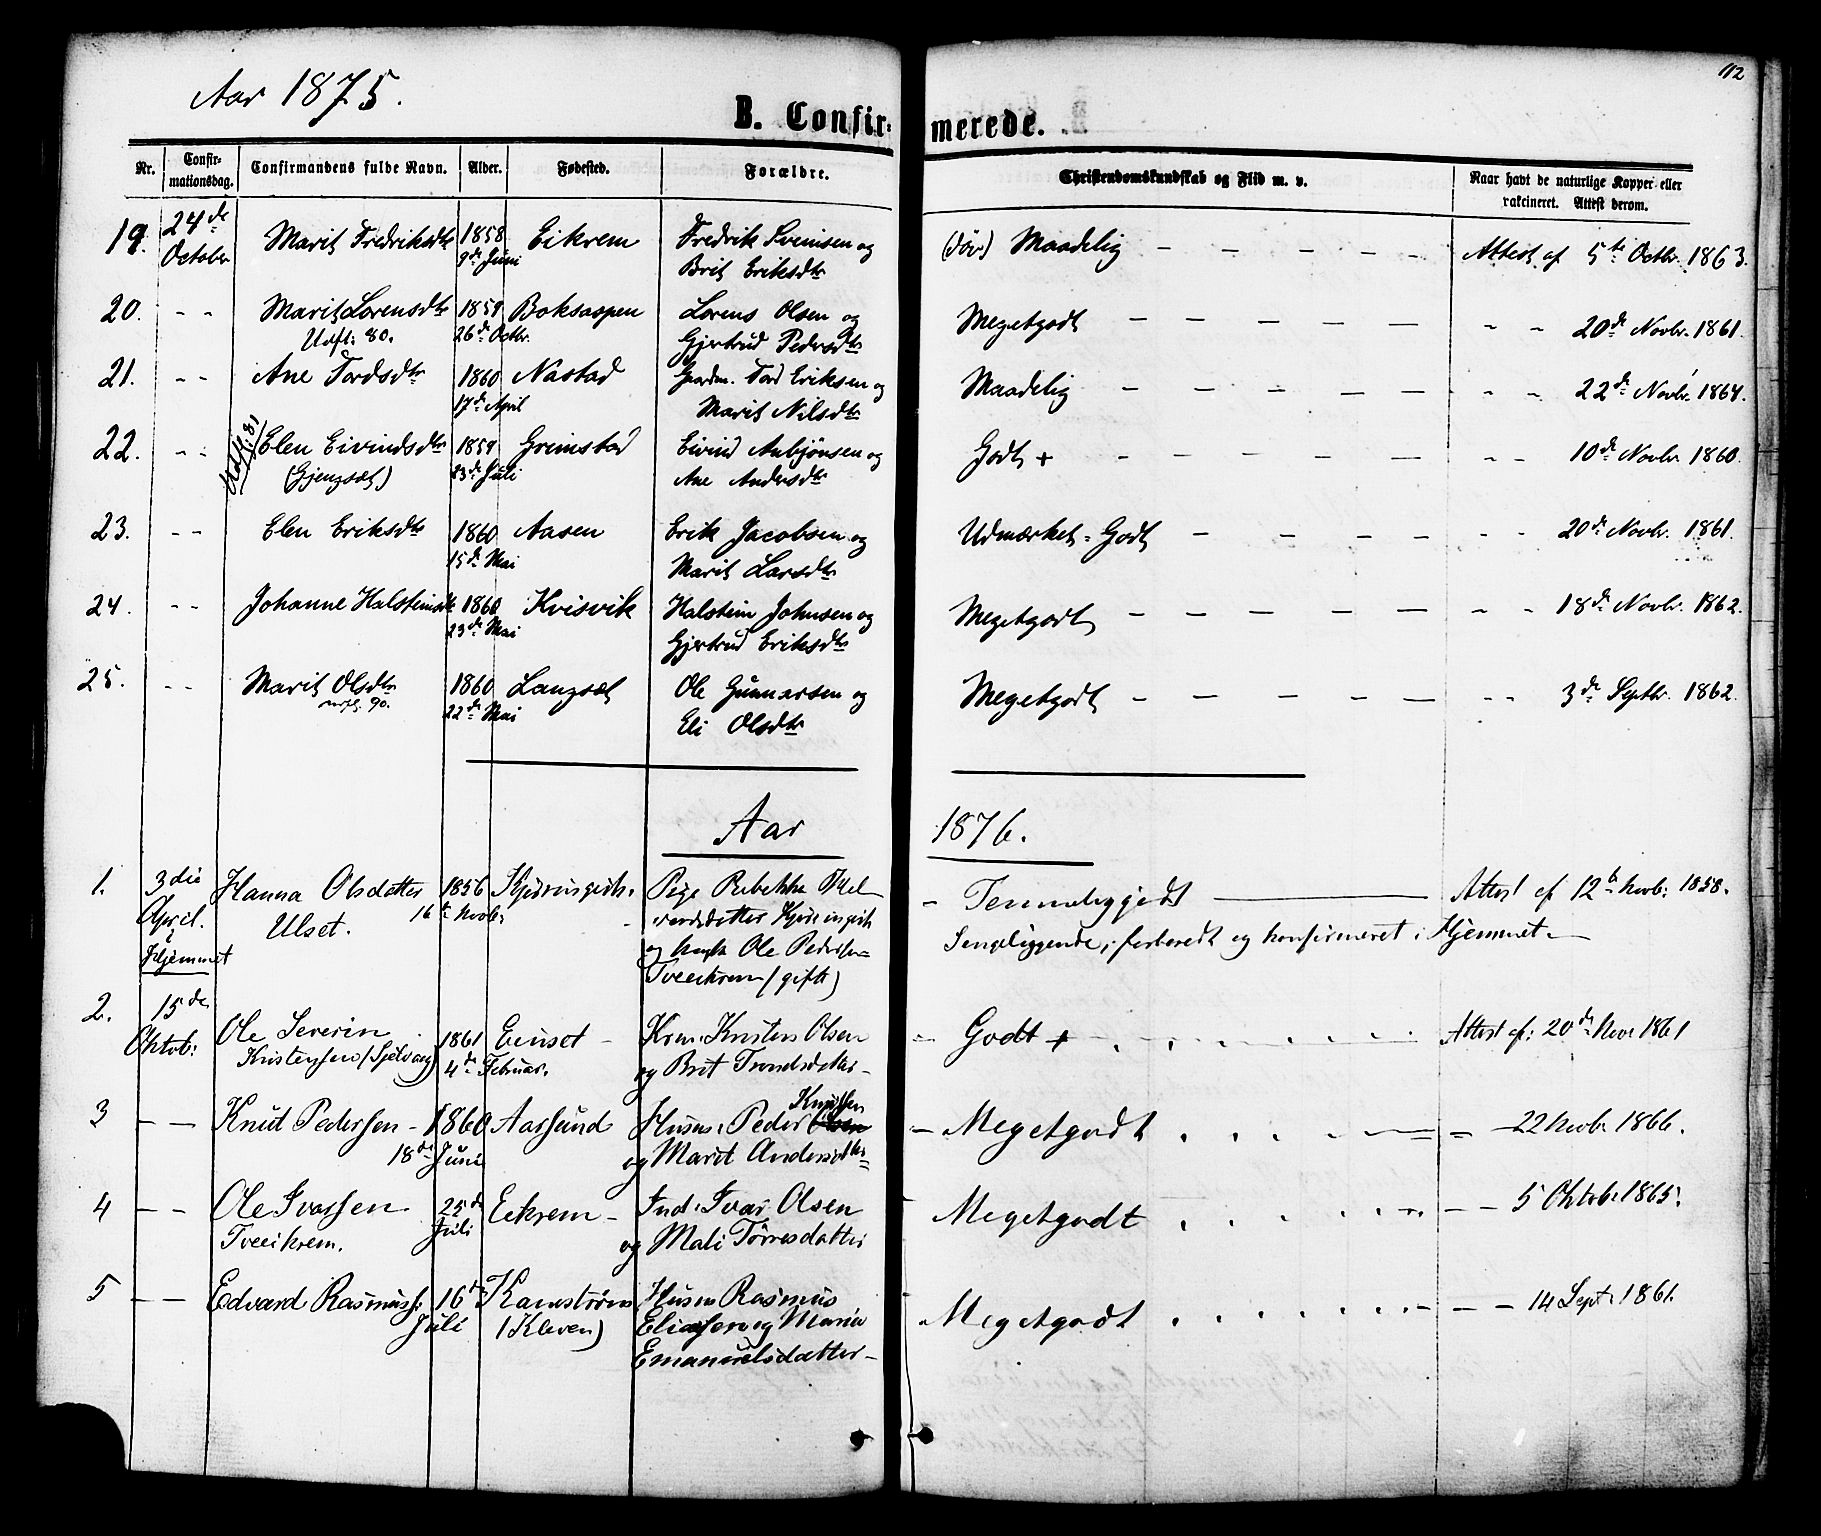 112
Aar 1875.
B. Confirmerede.
Nr. Confirmationsdag. Confirmandens fulde Navn. Alder. Fødested. Forældre. Christendomskundskab og Flid m. v. Naar havt de naturlige Kopper eller vakcineret. Attest derom.
19. 24de October Marit Fredriksdtr 1858 9de Juni Eikrem Fredrik Svensen og Brit Eriksdtr (döv) Maadelig – – – – Attest af 5te Octbr. 1863.
20. - - Marit Lorensdtr 1859 26de Octbr. Boksaspen Lorens Olsen og Gjertrud Pedersdtr Megetgodt – – – – – - - 20de Novbr. 1861.
Udfl: 80.
21. - - Ane Tordsdtr 1860 17de April Nastad Gaardm. Tord Eriksen og Marit Nilsdtr Maadelig – – – – – - - 22de Novbr. 1864.
22. - - Udfl: 81 Elen Eivindsdtr (Gjengsæt) 1859 23de Juli Grimstad Eivind Anbjönsen og Ane Andersdtr Godt + - – – – – - - 10de Novbr 1860.
23. - - Elen Eriksdtr 1860 15de Mai Aasen Erik Jacobsen og Marit Larsdtr Udmærket-Godt – - – – – - - 20de Novbr. 1861.
24. - - Johanne Halsteinsdtr 1860 23de Mai Kvisvik Halstein Johnsen og Gjertrud Eriksdtr Megetgodt – – – – – - - 18de Novbr. 1862.
25. - - Marit Olsdtr 1860 22de Mai Langsæt Ole Gunnarsen og Eli Olsdtr Megetgodt – – – – – - - 3de Septbr. 1862.
90.
Aar 1876.
1. 3die April. i Hjemmet Hanna Olsdatter Ulset. 1856 16de Novb: Pige Rebekka og Ole Pedersen Tveeikrem (gift) - Temmeliggodt — Attest af 12te Novb: 1858.
Sengeliggende, forberedt og konfirmeret i Hjemmet.
2. 15de Oktob: Ole Severin Kristensen (Sjelvaag) 1861 4de Februar. Eunset - Kristen Olsen og Brit Trondsdatter - - Godt + Attest af: 20de Novr 1861
3 - - Knut Pedersen - 1860 18de Juni Aarsund Husm. Peder Olsen Knutsen og Marit Andersdtr - Megetgodt - 22 Novbr 1866.
4 - - Ole Ivarsen Tveeikrem. 25de Juli Eikrem - Ind. Ivar Olsen og Mali Törresdatter Megetgodt - - 5 Oktob. 1865.
5 - - Edvard Rasmuss: 16de Juli Kanestrøm (Kleven) Husm Rasmus Eliassen og Maria Emanuelsdatter - Megetgodt - - - 14 Sept. 1861.